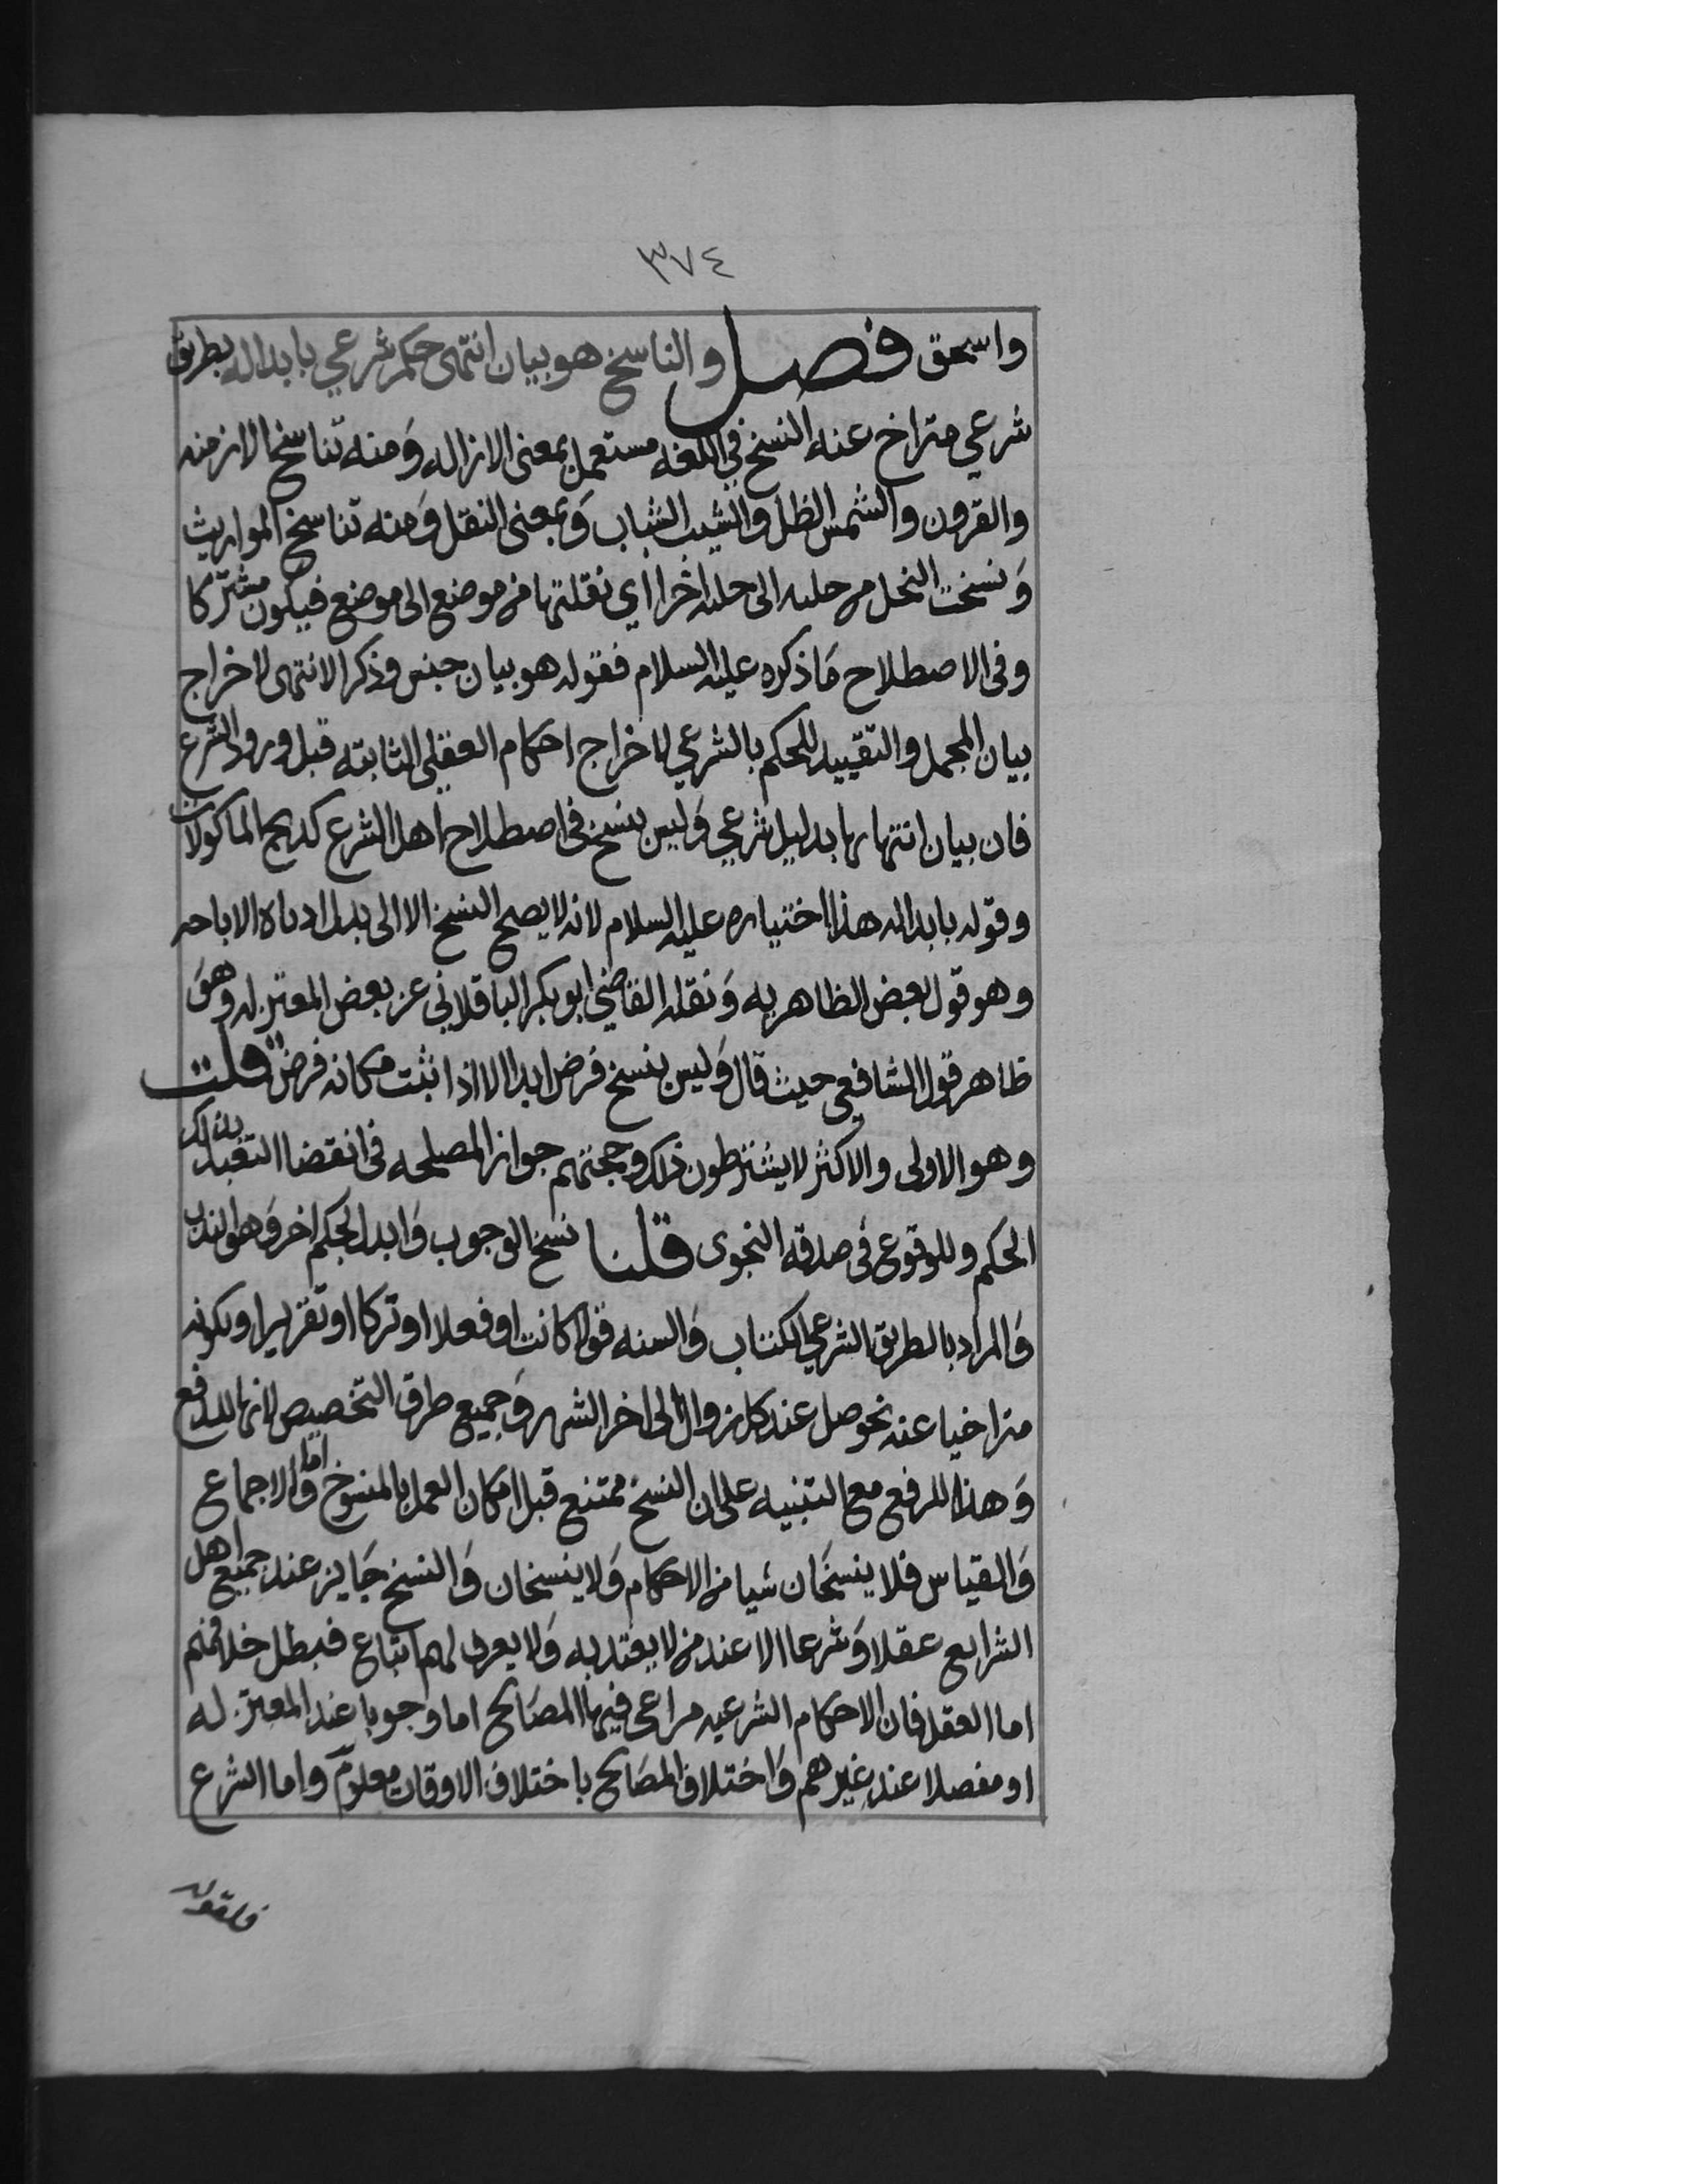 ٣٧٤
واسحق فصل والناسخ هو بيان انتهى حكم شرعي بابداله بطريق
شرعي متراخ عنه النسخ في اللغه مستعمل بمعنى الازاله ومنه تناسخ الازمنه
والقرون والشمس الظل والشيب الشباب وَبمعنى النقل وَمنه تناسخ المواريث
وَنسخت النحل من خليه الى خليه اخرا اي نقلتها من موضع الى موضع فيكون مشتركا
وفي الاصطلاح مَا ذكره عليه السلام فقوله هو بيان جنس وذكر الانتهى لاخراج
بيان المجمل والتقييد للحكم بالشرعي لاخراج احكام العقلي الثابته قبل ورود الشرع
فان بيان انتهايها بدليل شرعي وَليس بنسخ في اصطلاح اهل الشرع كذبح الماكولات
وقوله بابداله هذا اختياره عليه السلام لانه لا يصح النسخ الا الى بدل ادناه الاباحه
وهو قول بعض الظاهريه وَنقله القاضي ابو بكر الباقلاني عن بعض المعتزله وهوَ
ظاهر قول الشافعي حيث قال وَليس ينسخ فرض ابدا الا اذا اثبت مكانه فرض قلت
وهو الاولى والاكثر لا يشترطون ذلك وحجتهم جواز المصلحه في انقضا التعبد بذلك
الحكم وللوقوع في صدقه النجوى قلنا نسخ الوجوب وَابدل بحكم اخر وَهو الندب
وَالمراد بالطريق الشرعي الكتاب وَالسنه قولا كانت او فعلا او تركا او تقريرا وبكونه
متراخيا عنه نحو صل عند كل زوال الى اخر الشهر وَجميع طرق التخصيص لانها للدفع
وَهذا للرفع مع التنبيه على ان النسخ ممتنع قبل امكان العمل بالمنسوخ وَاما الاجماع
وَالقياس فلا ينسخَان شيا من الاحكام وَلا ينسخان وَالنسخ جَايز عند جميع اهل
الشرايع عقلا وَشرعا الا عند من لا يعتد به وَلا يعرف لهم اتباع فبطل خلافهم
اما العقل فان الاحكام الشرعيه مراعى فيها المصَالح اما وجوبا عند المعتزله
او مفضلا عند غيرهم وَاختلاف المصَالح باختلاف الاوقات معلوم واما الشرع
فلقوله